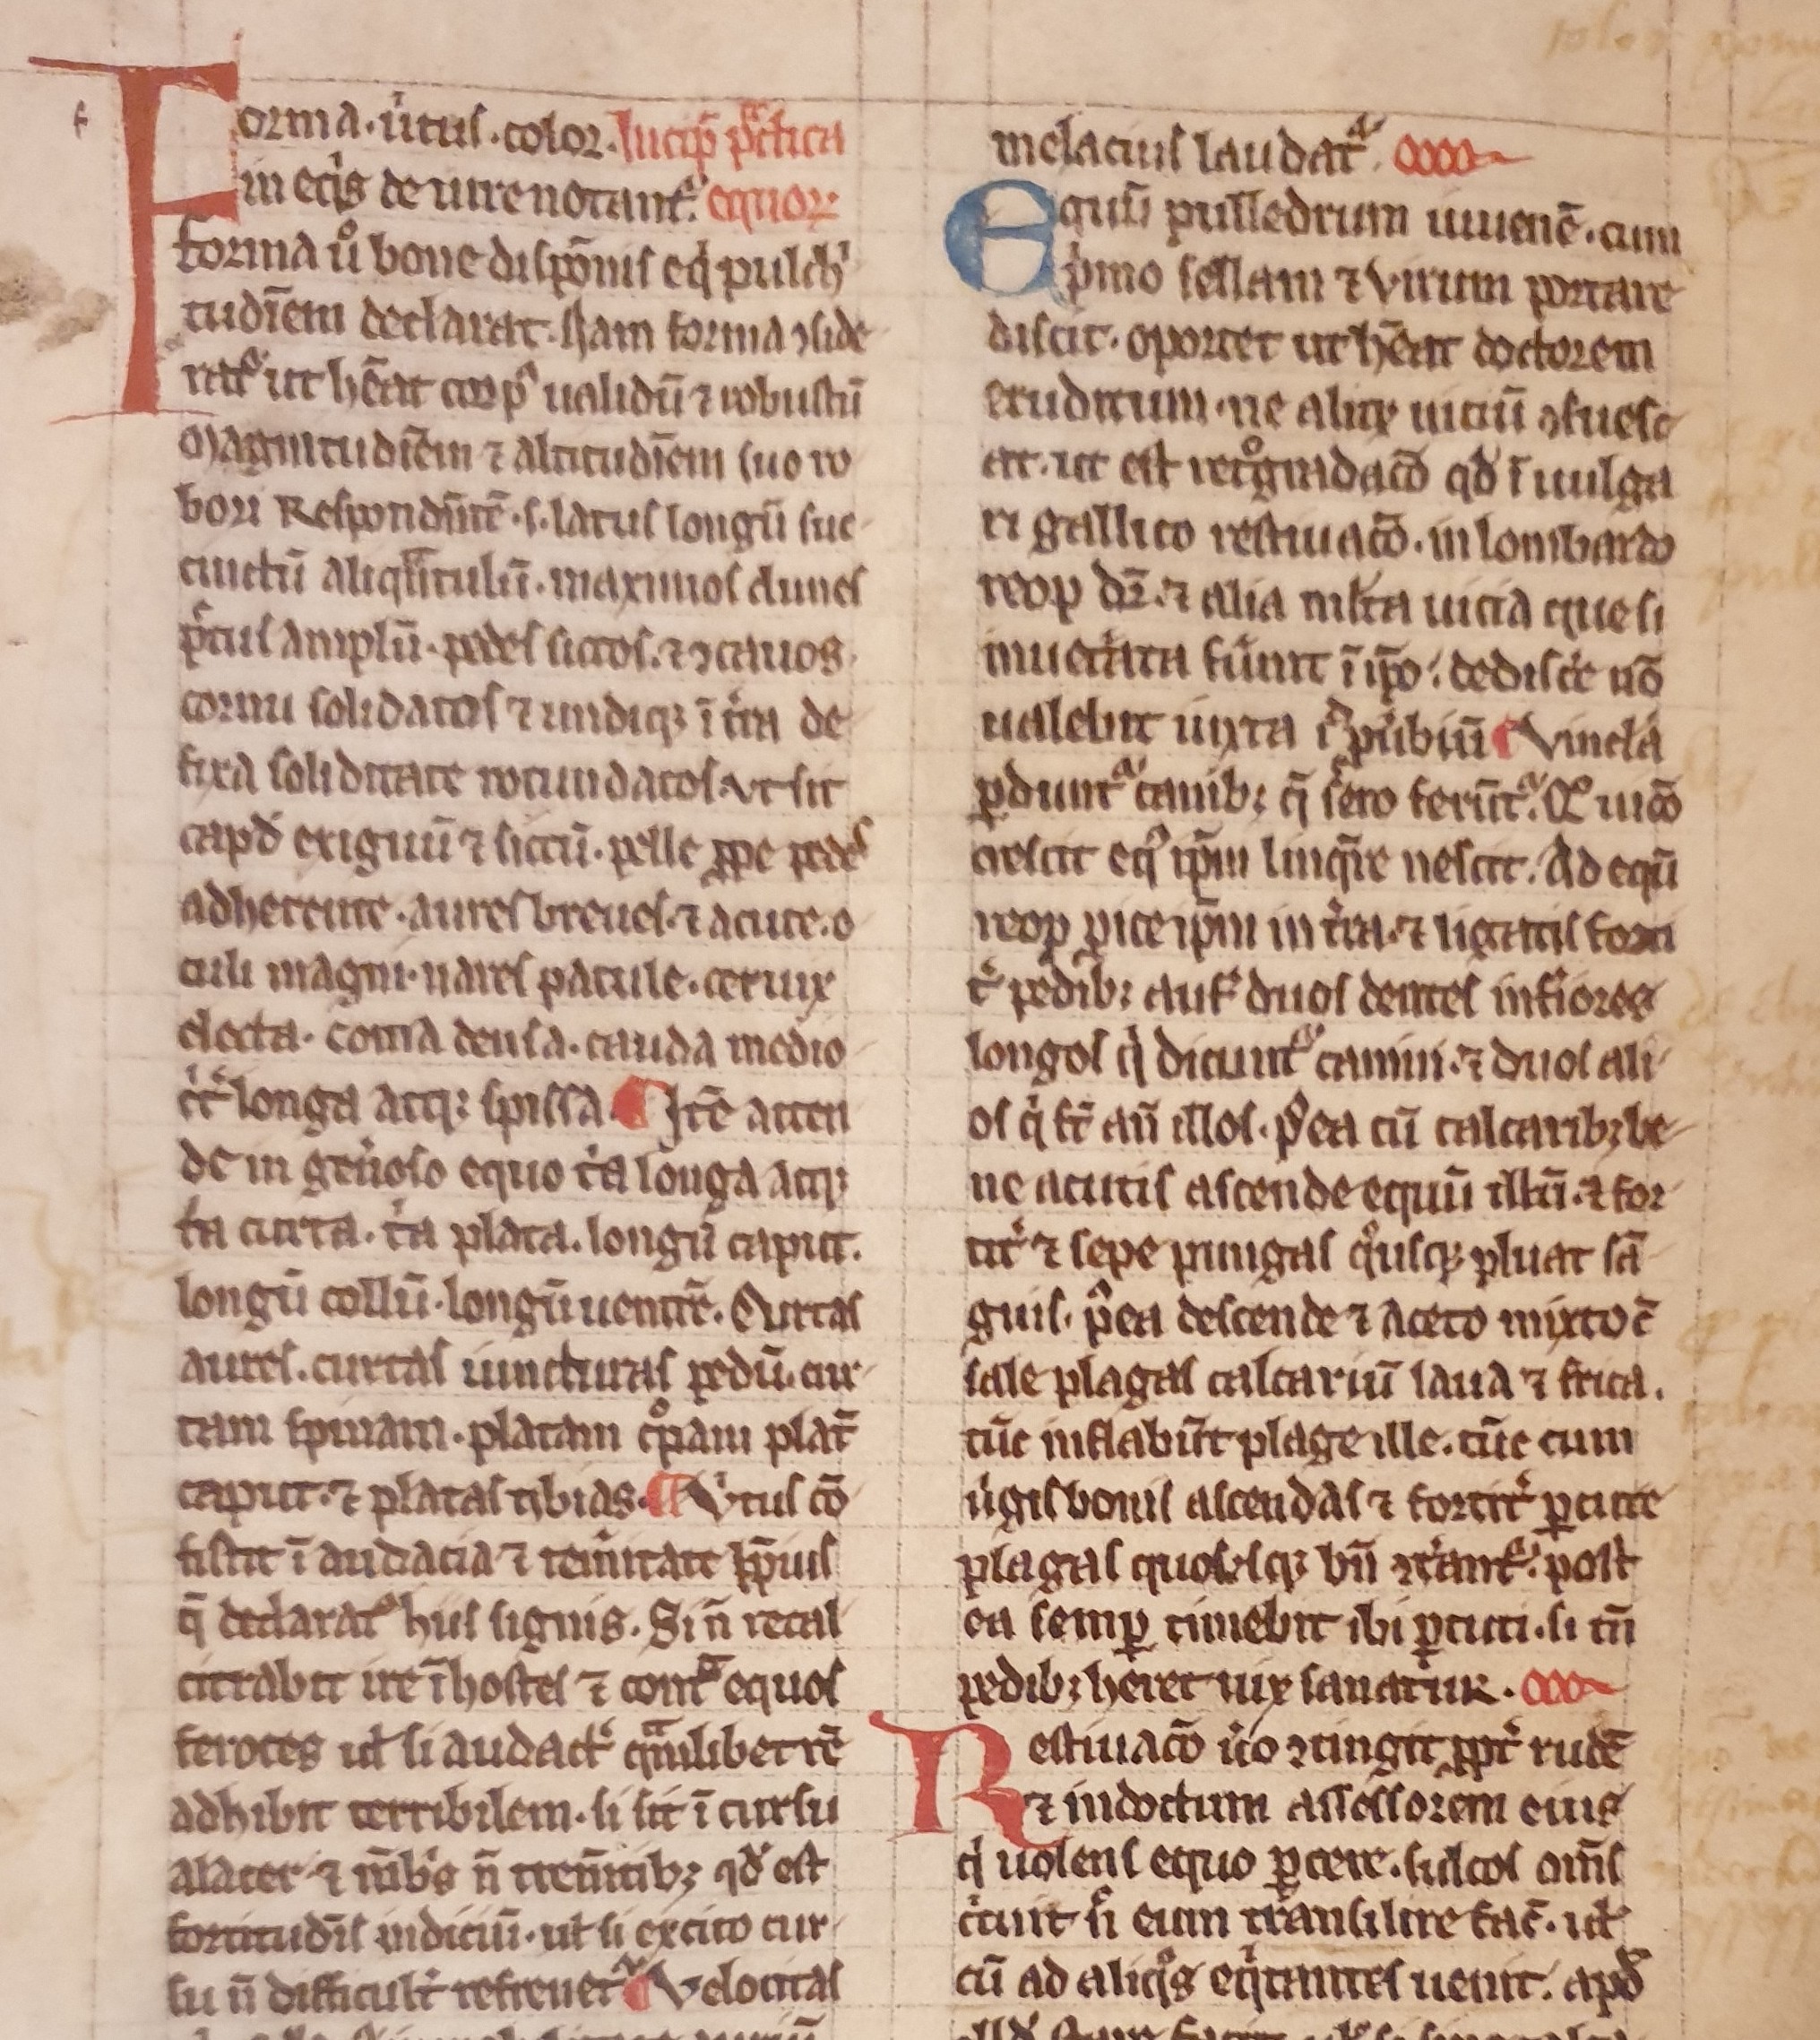 Forma. u̓tus. color. Incip̃ p̃ctica
in eqͥs de iure notant᷑. equoꝝ
forma u̓o bone disp̃onis eqͥ pulch̓
tudīem declarat. Nam forma ꝯside
rat᷑ ut hēat corpꝰ ualidū ⁊ robustū
Magnitudīem ⁊ altitudīem suo ro
bori Respondēte. s. latus longū suc
cinctū aliqͣntulū. maximos clunes
p̓ctus amplū. pedes siccos. ⁊ ꝯcauos
cornu solidatos ⁊ undiqꝫ ī t̓ra de
fixa soliditate rotundatos. vt sit
capđ exiguū ⁊ siccū. pelle ꝓpe pedes
adherente. aures breues. ⁊ acute. o
culi magni. nares patule. ceruix
electa. coma densa. cauda medio
cͥt̓ longa atqꝫ spissa. ¶ Itē atten
de in gen̓oso equo t̓a longa atqꝫ
t̓a curta. t̓a plata. longū caput.
longū collū. longū uentrē. Curtas
aures. curtas iuncturas pedū. cur
tam spinam. platam cͦpam plat̄
caput. ⁊ platas tibias. ¶ V̓tus cō
sistit ī audacia ⁊ tem̓itate ip̄ius
q̄ declarat᷑ hiis signis. Si n̄ recal
citrabit ire ī hostes ⁊ contͣ equos
feroces ul̓ si audact̓ qͣmlibet rē
adhibit terribilem. si sit ī cursu
alacer ⁊ mēbͥs n̄ trem̄tibꝫ qđ est
fortitudīs indiciū. ul̓ si excito cur
su n̄ difficult̓ refrenet᷑ ¶ Velocitas
melacius laudat᷑.
Equū pulledrum iuuenē. cum
pͥmo sellam ⁊ virum portare
discit. oportet ut hēat doctorem
eruditum. ne aliqͥ uiciū ꝯsuesc
at. ut est retͦgradacō qđ ī uulga
ri gallico restiuacō. in lombardo
reop dꝫ. ⁊ alia mlta uicia que si
inuet̓ata fu̓int ī ip̄o. dedisc̓e nō
ualebit iuxta ꝓu̓biū ¶ Vincla
ꝑdunt᷑ canibꝫ q̄ s̓ero ferūt᷑. Qͦ uicō
crescit eqͥ ip̄m linqͥre nescit. Ad equū
reop ꝓice ip̄m in t̓ra. ⁊ ligatis forti
t̓ pedibꝫ auf̓ duos dentes inf̓iores
longos qͥ dicunt᷑ canini. ⁊ duos ali
os qͥ st̄ an̄ illos. Pꝰea cū calcaribꝫ be
ne acutis ascende equū illū. ⁊ for
tit̓ ⁊ sepe pungas qͦusqꝫ pluat sā
guis. pꝰea descende ⁊ aceto mixto c̄
sale plagas calcariū laua ⁊ frica.
tūc inflabūt plage ille. tūc cum
u̓gis bonis ascendas ⁊ fortit̓ ꝑcute
plagas quousqꝫ bn̄ ꝯt̓ant᷑. post
ea semꝑ timebit ibi ꝑcuti. si tn̄
pedibꝫ heret uix sanatur.
Restiuacō u̓o ꝯtingit ꝓpt̓ rudē
⁊ indoctum assessorem eius
qͥ uolens equo ꝑcere. sulcos om̄s
cͥcuit n̄ eum transilire fac̄. ul̓
cū ad aliqͦs eqͥtantes uenit. apđ